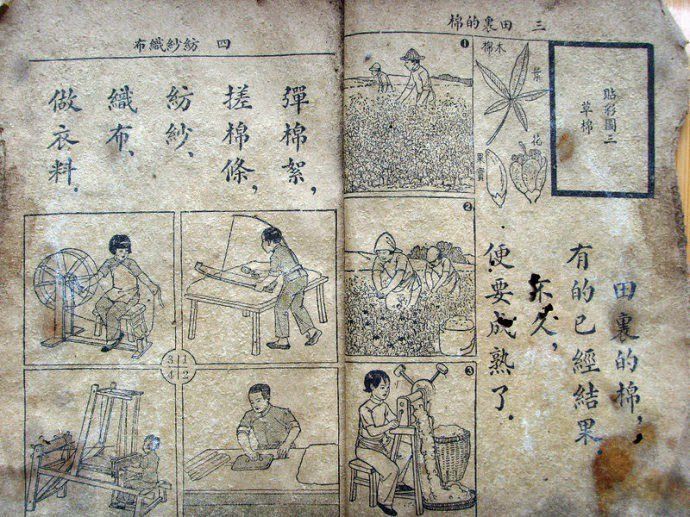 三 田裏的棉
貼彩圖三
草棉
木棉
葉
花
果實
田裏的棉，
有的已經結果，
不久，
便要成熟了．
1
2
3
四 紡紗織布
彈棉絮，
搓棉條，
紡紗，
織布，
做衣料．
3 1
4 2